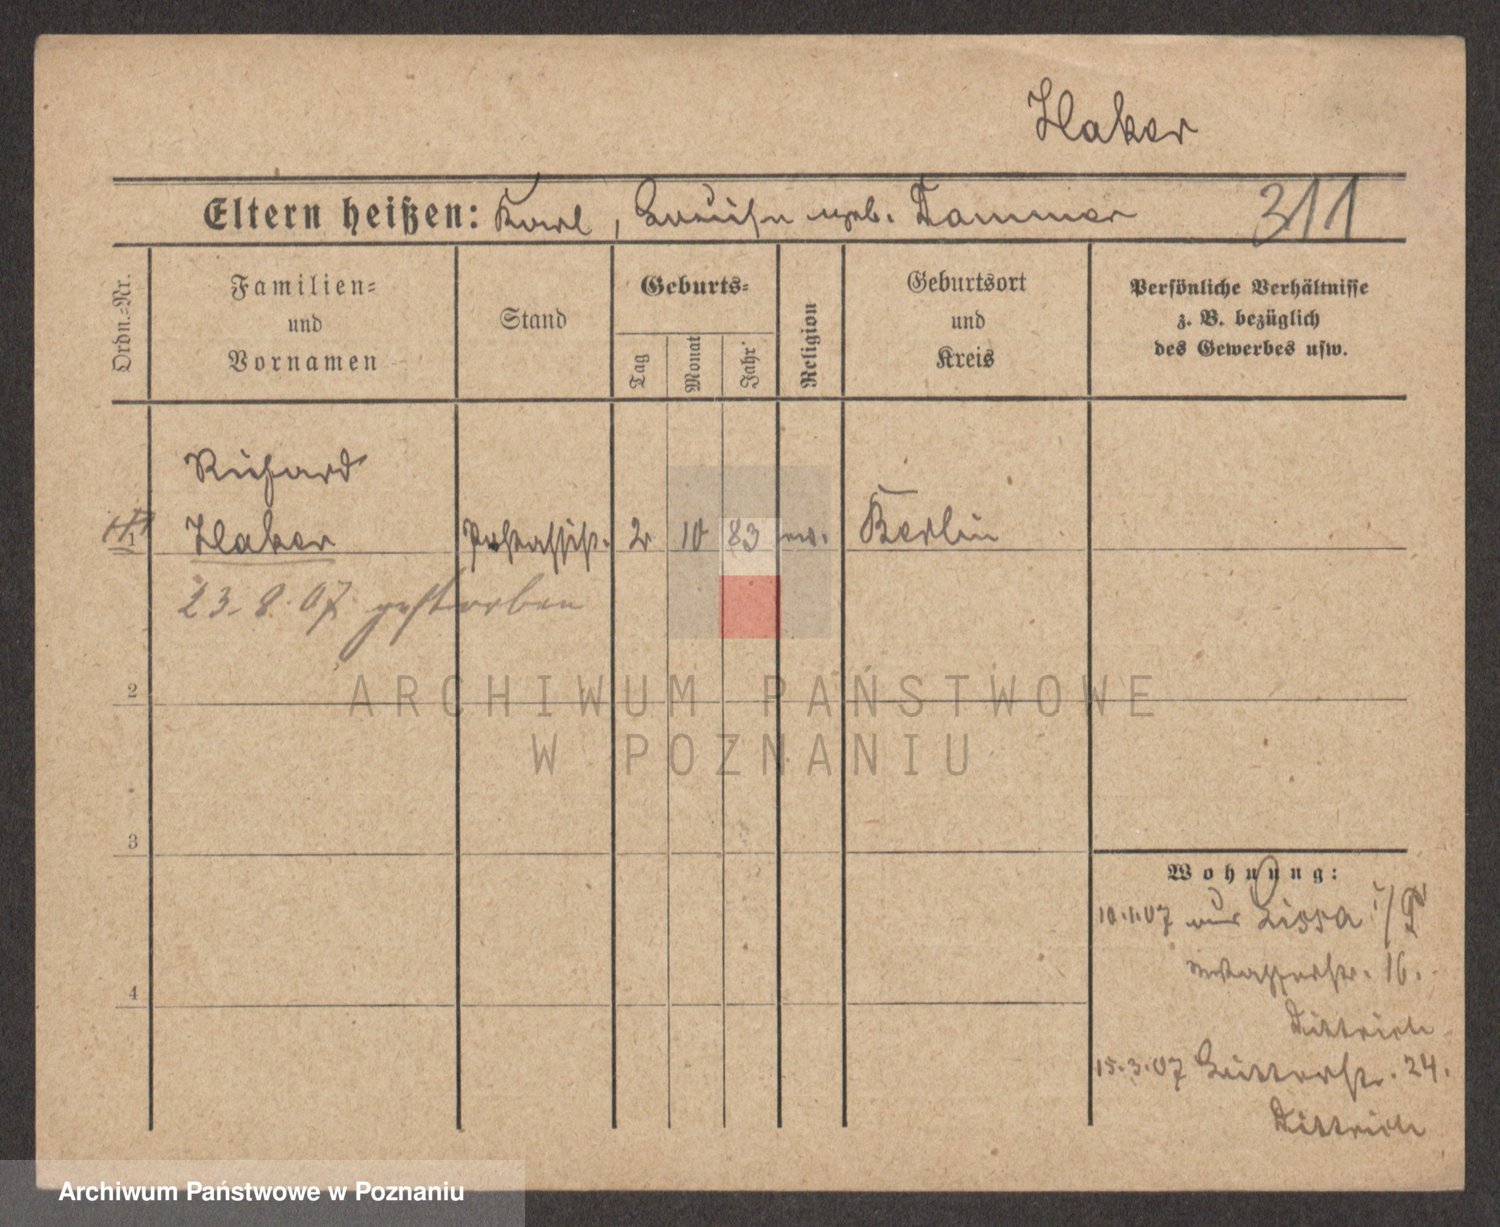 Haker
Eltern heißen: Karl, Louise geb. Dammer 311
Ordn.-Nr.
Familien-
und
Vornamen
Stand
Geburts-
Tag
Monat
Jahr
Religion
Geburtsort
und
Kreis
Persönliche Verhältnisse
z. B. bezüglich
des Gewerbes usw.
Richard
1 Haker Postassist. 2 10 83 ev. Berlin
23. 8. 07 gestorben
2
ARCHIWUM PAŃSTWOWE
W POZNANIU
3
Wohnung:
10.1.07 aus Lissa i/P
16.
4
Dittrich
15.3.07 Ritterstr. 24.
Dittrich
Archiwum Państwowe w Poznaniu